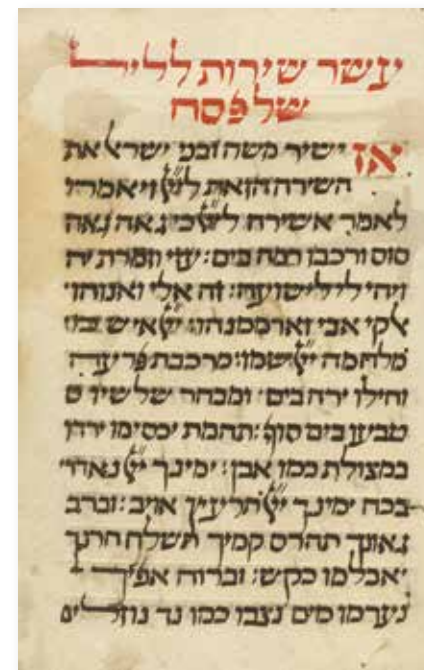 יעשר שירות לליל
של פסח
אז ישיר משה ובני ישראל את
השירה הזאת לייי ויאמרו
לאמר אשירה לייי כי גאה גאה
סוס ורכבו רמה בים: עזי וזמרת יה
ויהי לי לישועה: זה אלי ואנוהו
אלקי אבי וארממנהו: ייי איש
מלחמה ייי שמו: מרכבת פרעה
וחילו ירה בים ומבחר שלשיו
טבעו בים סוף: תהמת יכסימו ירדו
במצולת כמו אבן: ימינך ייי נאדרי
בכח ימינך ייי תרעץ אויב: וברב
גאונך תהרס קמיך תשלח חרנך
יאכלמו כקש: וברוח אפיך
נערמו מים נצבו כמו נד נוזלים